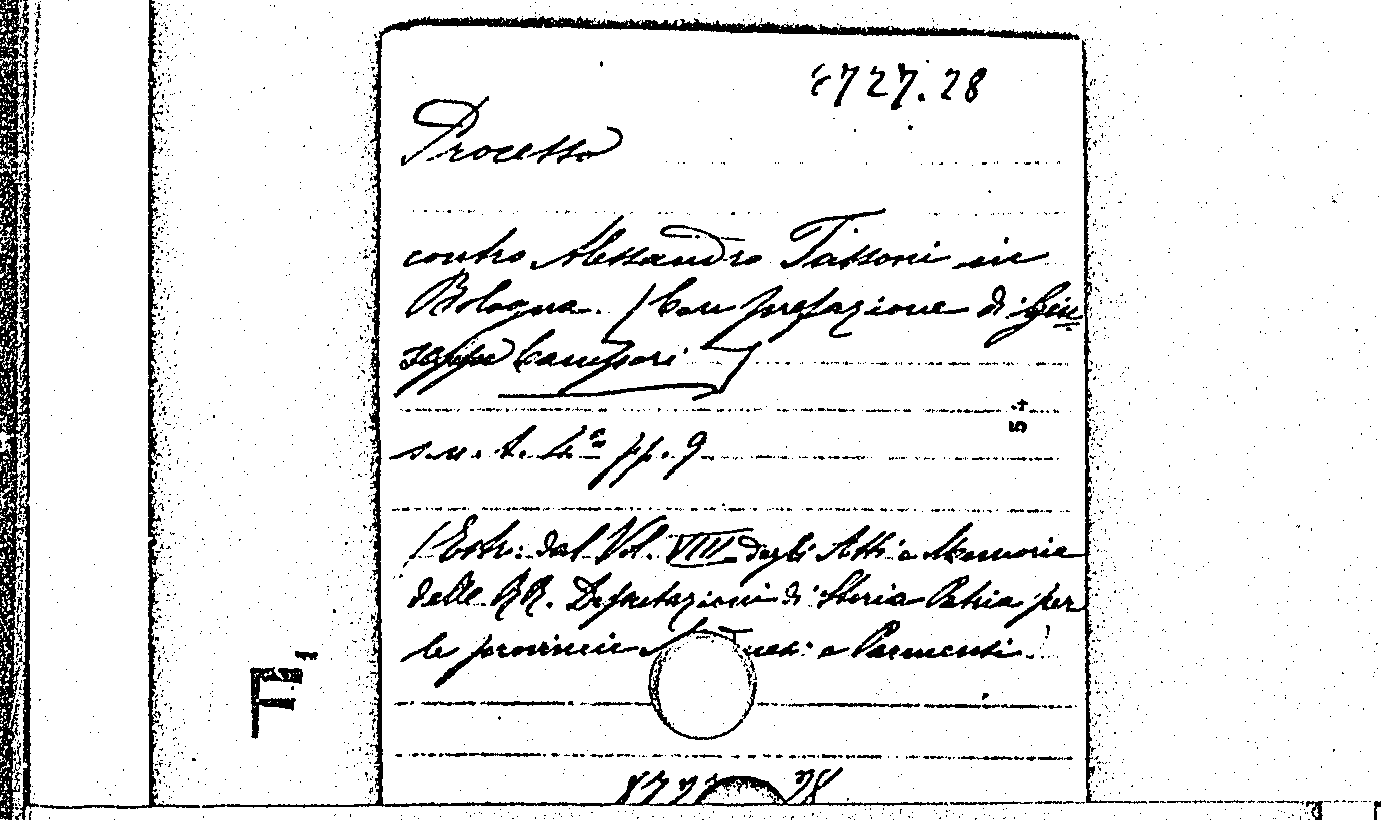 8727.28
Processo
contro Alessandro Tassoni in
Bologna. (Con prefazione di Giu
seppe Campori)
54
s.n.t. 4º pp. 9
(Estr. dal Vol. VIII degli Atti e Memorie
delle RR. Deputazioni di Storia Patria per
le provincie e Parmensi.
F